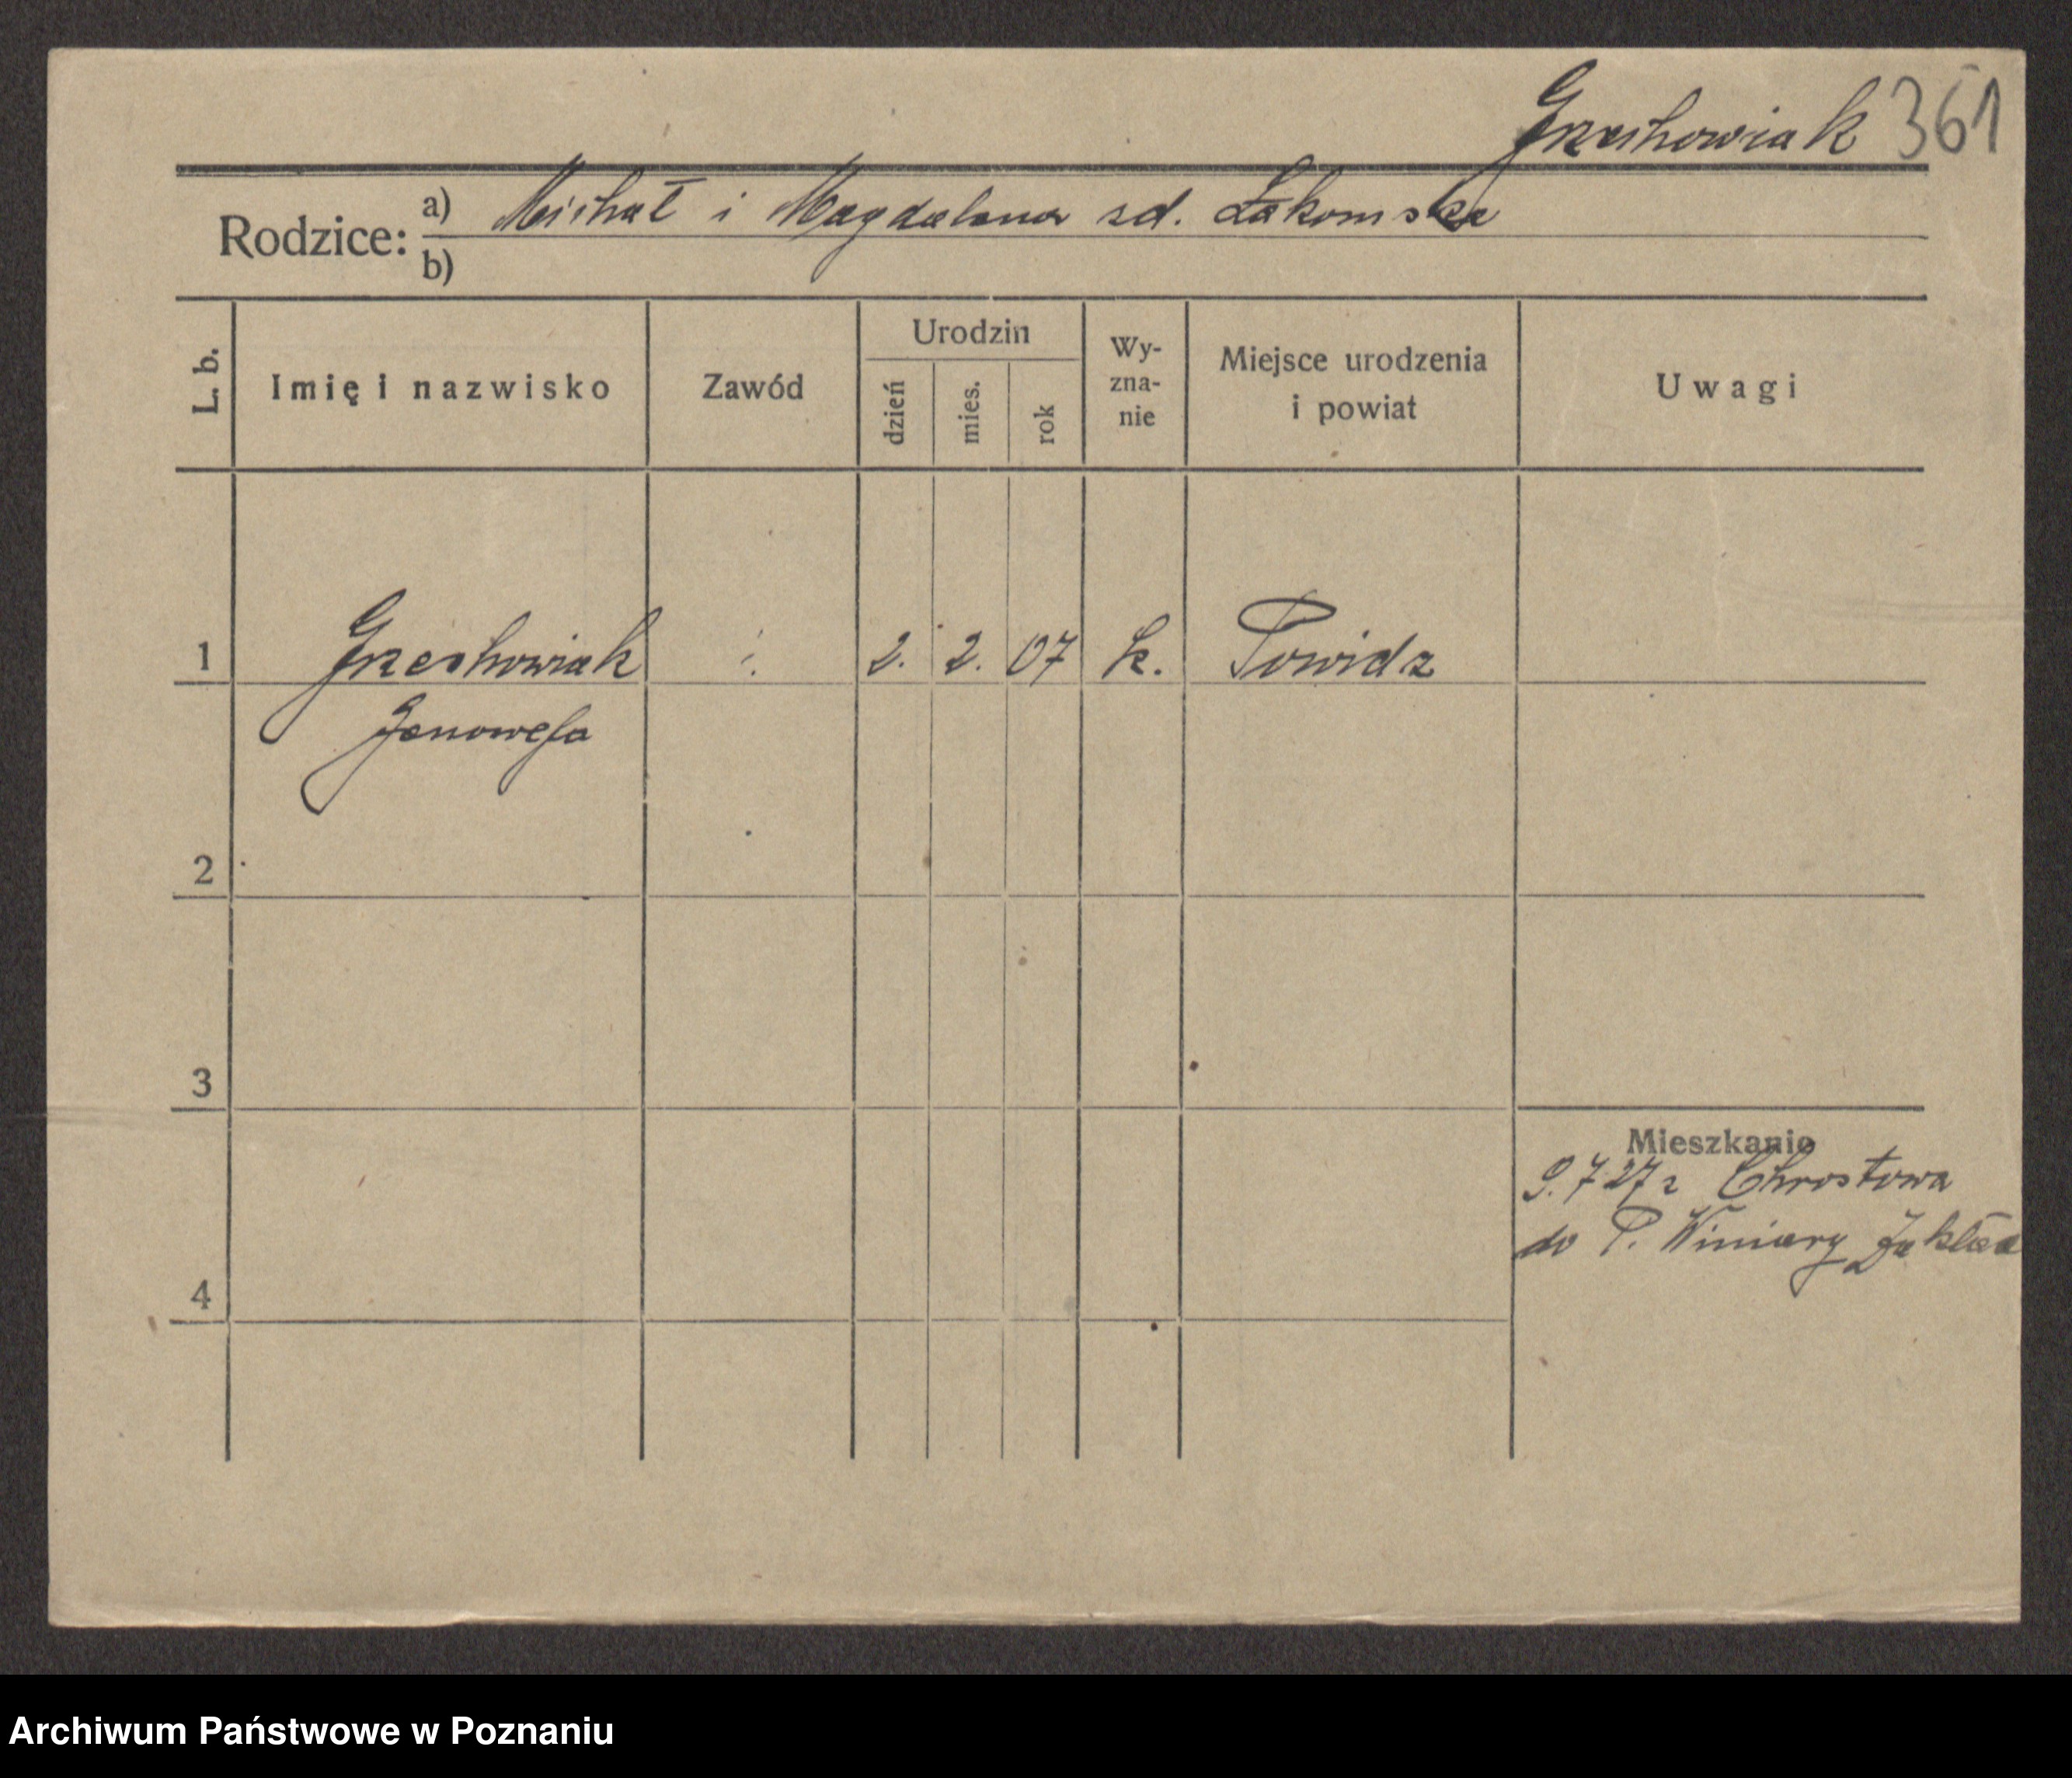 Grzechowiak 361
Rodzice: a) Michał i Magdalena zd. Łakomska
b)
L. b. Imię i nazwisko Zawód Urodzin dzień mies. rok Wy-zna-nie Miejsce urodzenia i powiat Uwagi
1 Grzechowiak 2. 2. 07 k. Powidz
Genowefa
2
3
Mieszkanie
9. 7 27 z Chrostowa
do P. Winiary Zakład
4
Archiwum Państwowe w Poznaniu